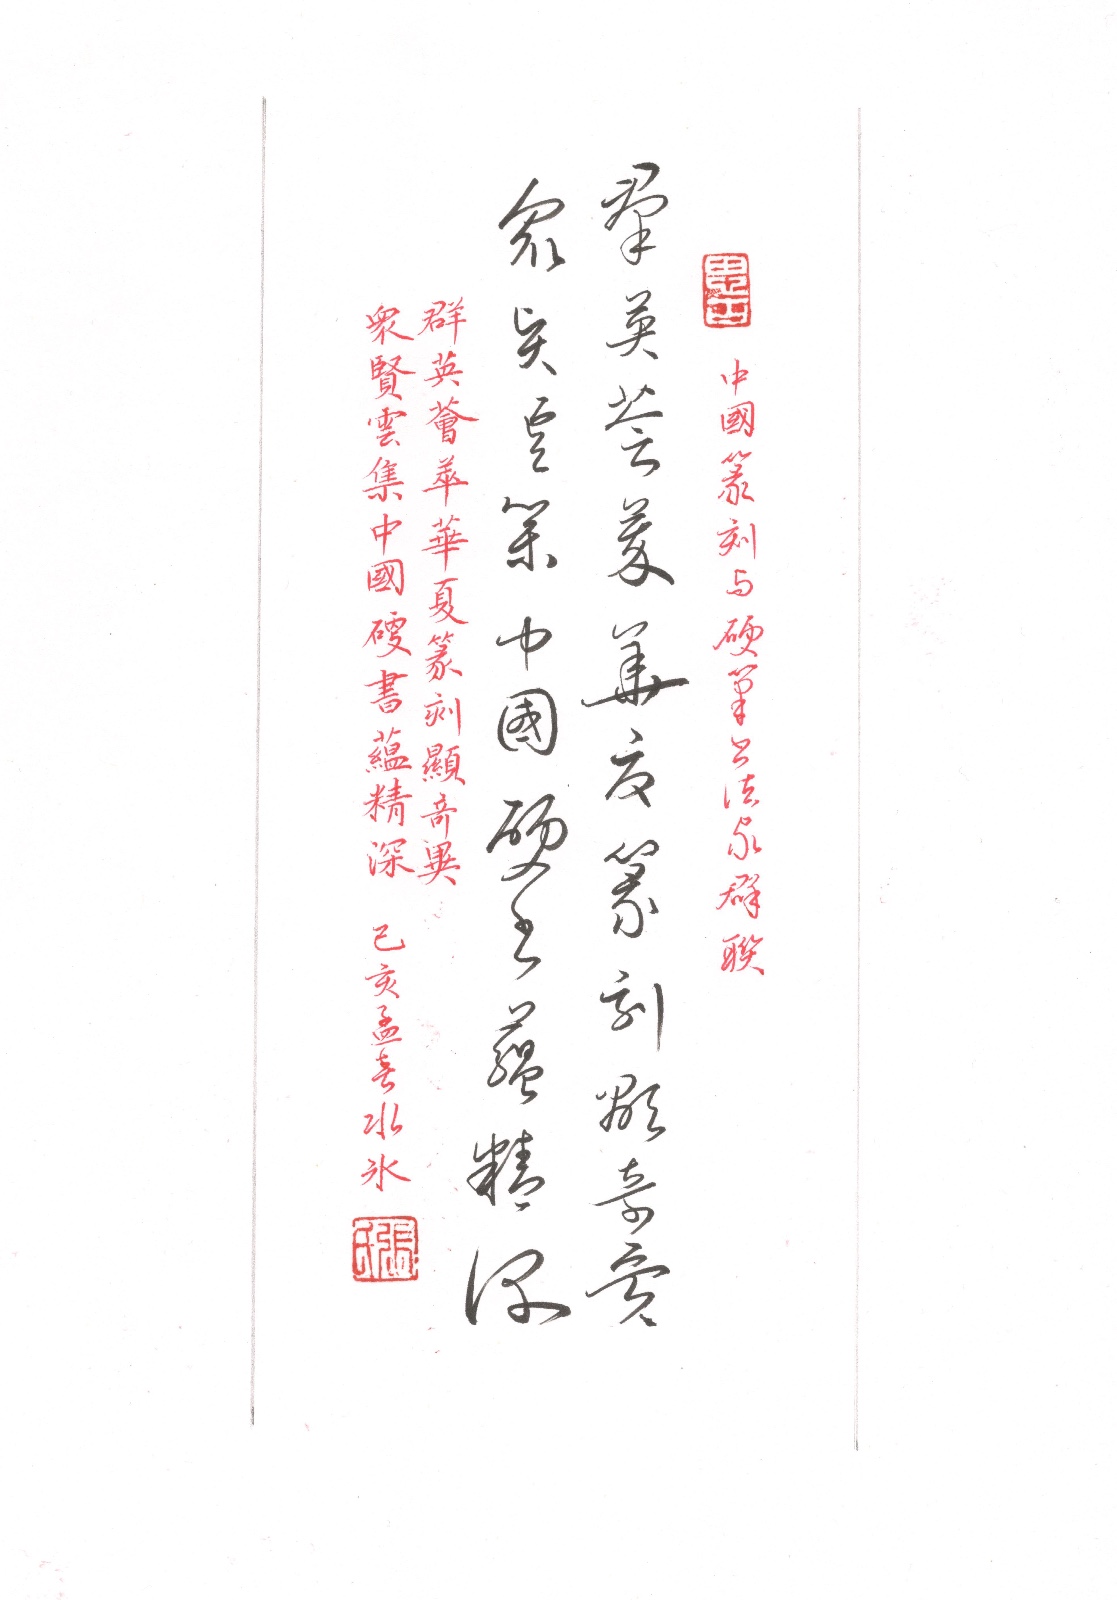 中國篆刻与硬筆书法家群联
羣英薈萃華夏篆刻顯奇異
衆賢雲集中國硬书蘊精深
群英薈萃華夏篆刻顯奇異
衆賢雲集中國硬書蘊精深 己亥孟春水氷